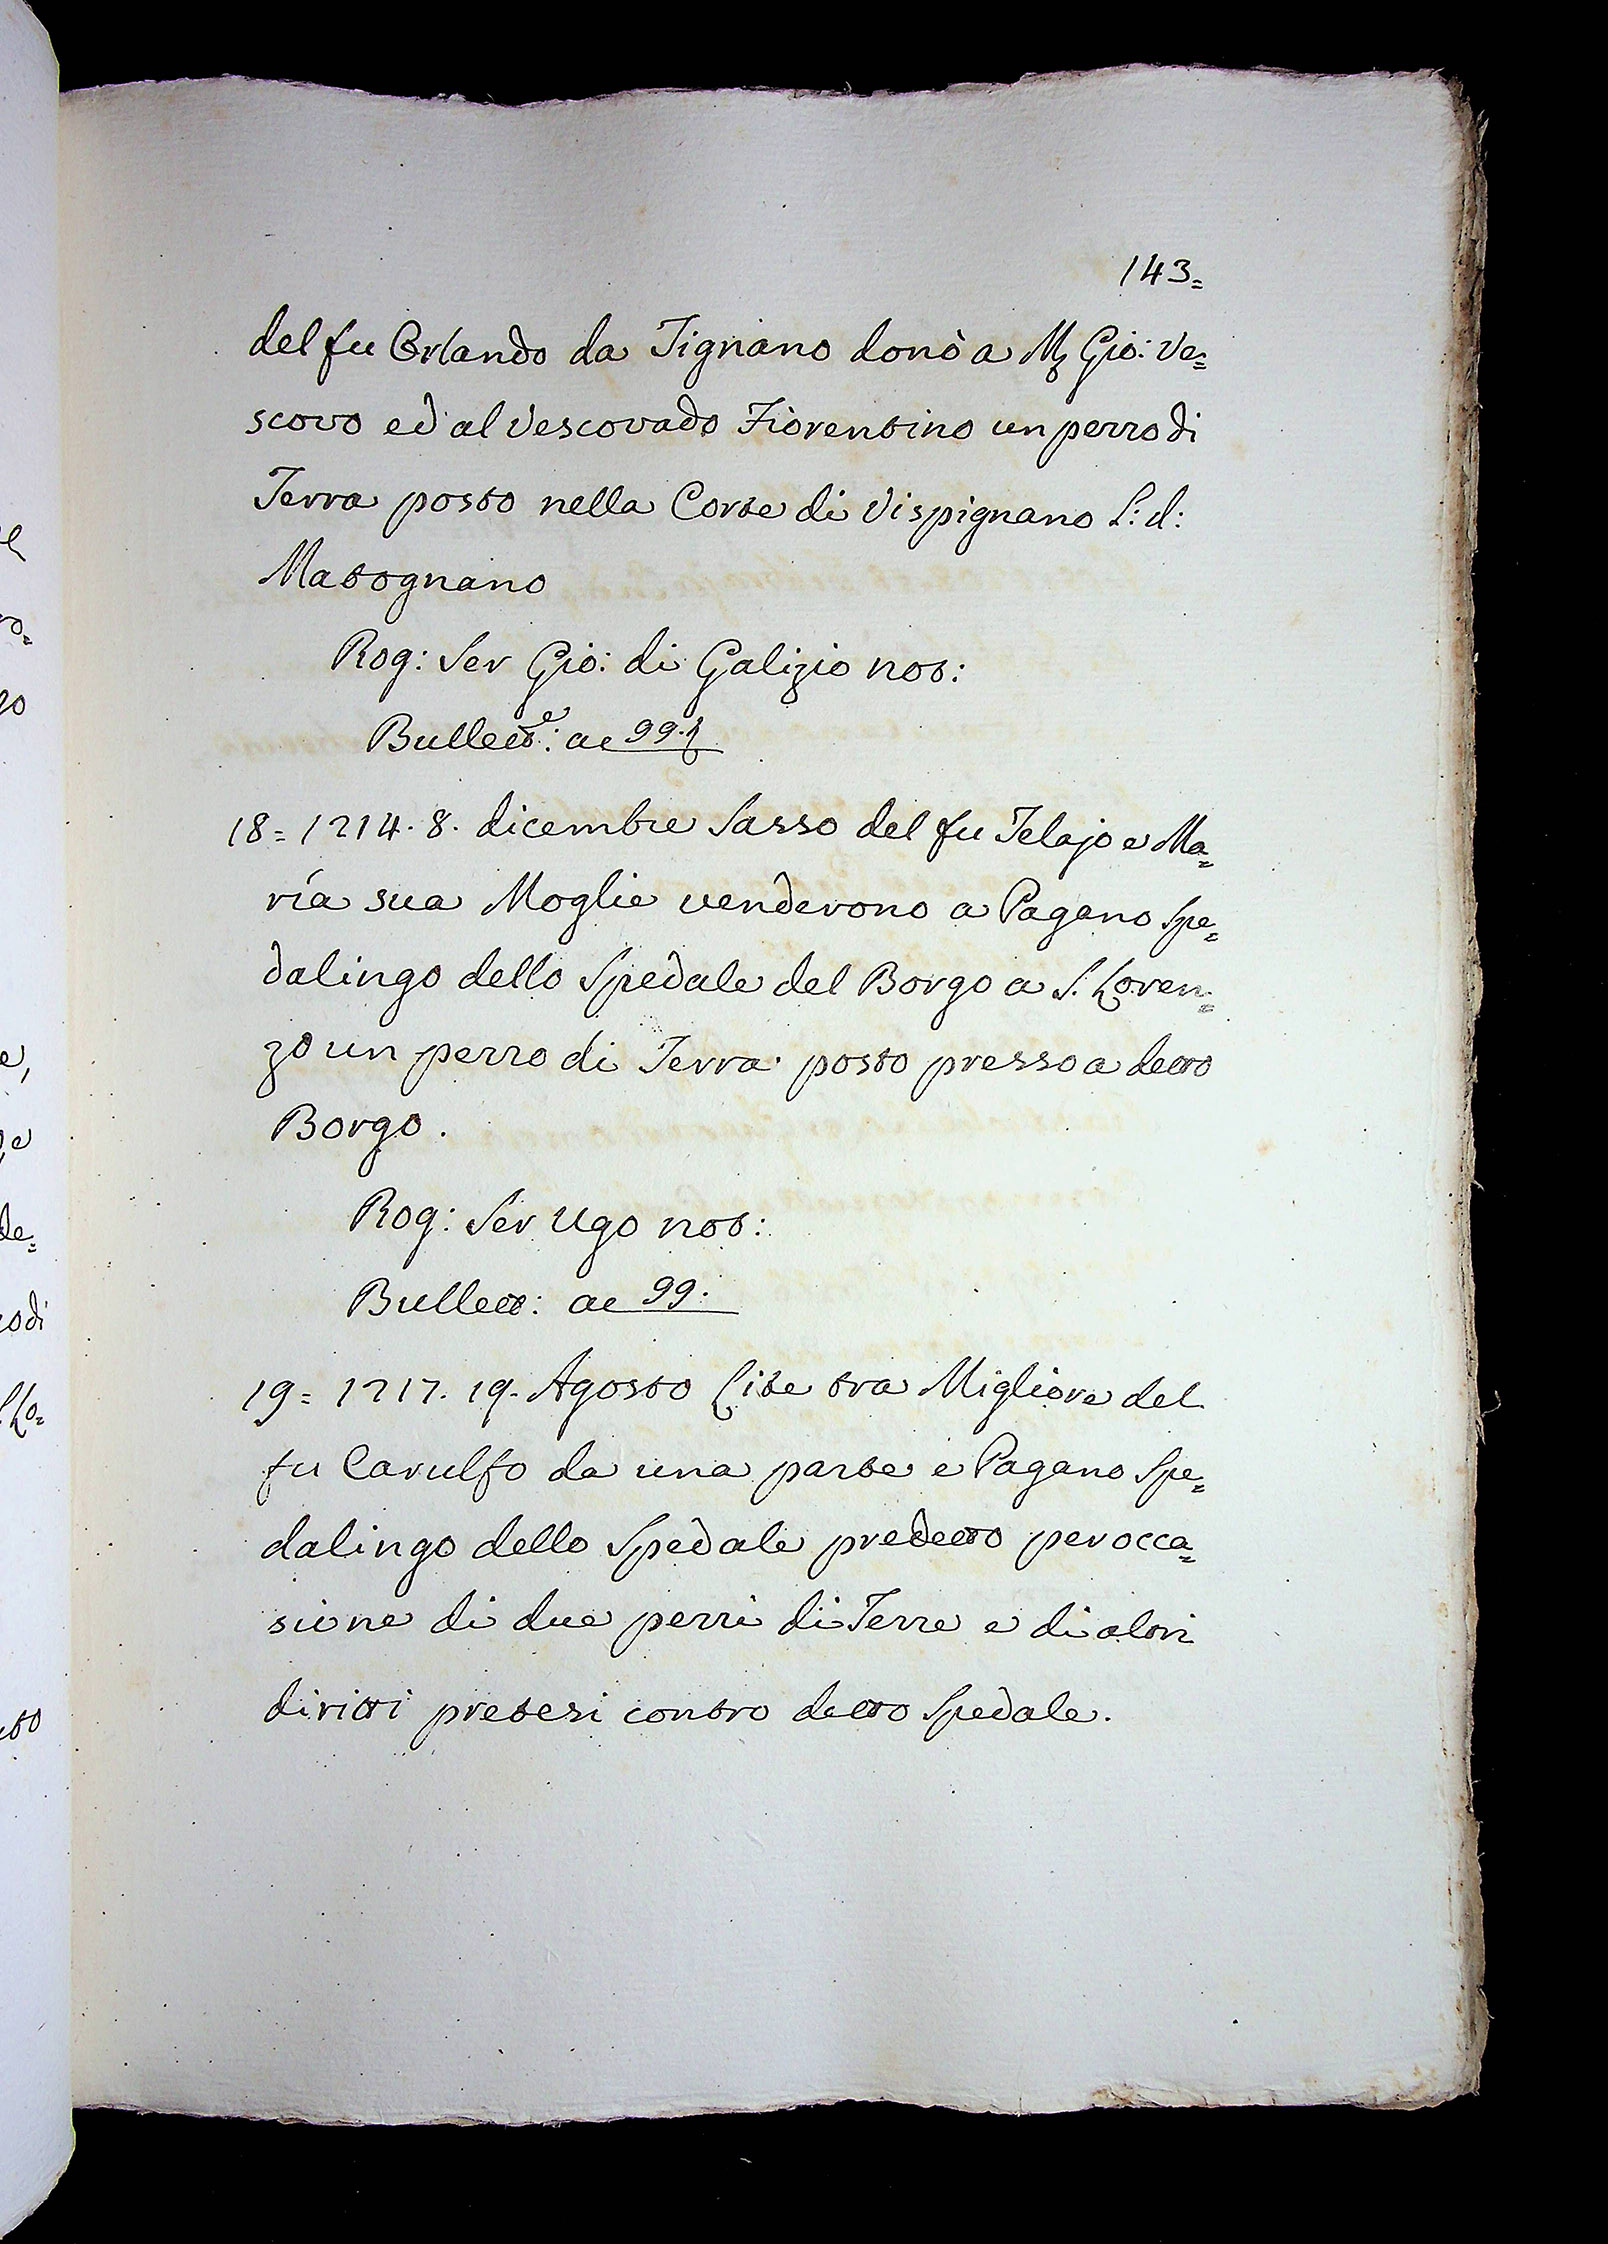 143=
del fu Orlando da Tignano donò a M Gio: Ve=
scovo ed al Vescovado Fiorentino un pezzo di
Terra posto nella Corte di Vispignano L: d:
Matognano
Rog: Ser Gio: di Galizio not:
Bullett:e ac 99.
18= 1214. 8. dicembre Sasso del fu Telajo e Ma=
ria sua Moglie venderono a Pagano Spe=
dalingo dello Spedale del Borgo a S. Loren=
zo un pezzo di Terra posto presso a detto
Borgo.
Rog: Ser Ugo not:
Bullett: ac 99.
19= 1217. 19. Agosto Lite tra Migliore del
fu Carulfo da una parte e Pagano Spe=
dalingo dello Spedale predetto per occa=
sione di due pezzi di Terre e di altri
diritti pretesi contro detto Spedale.